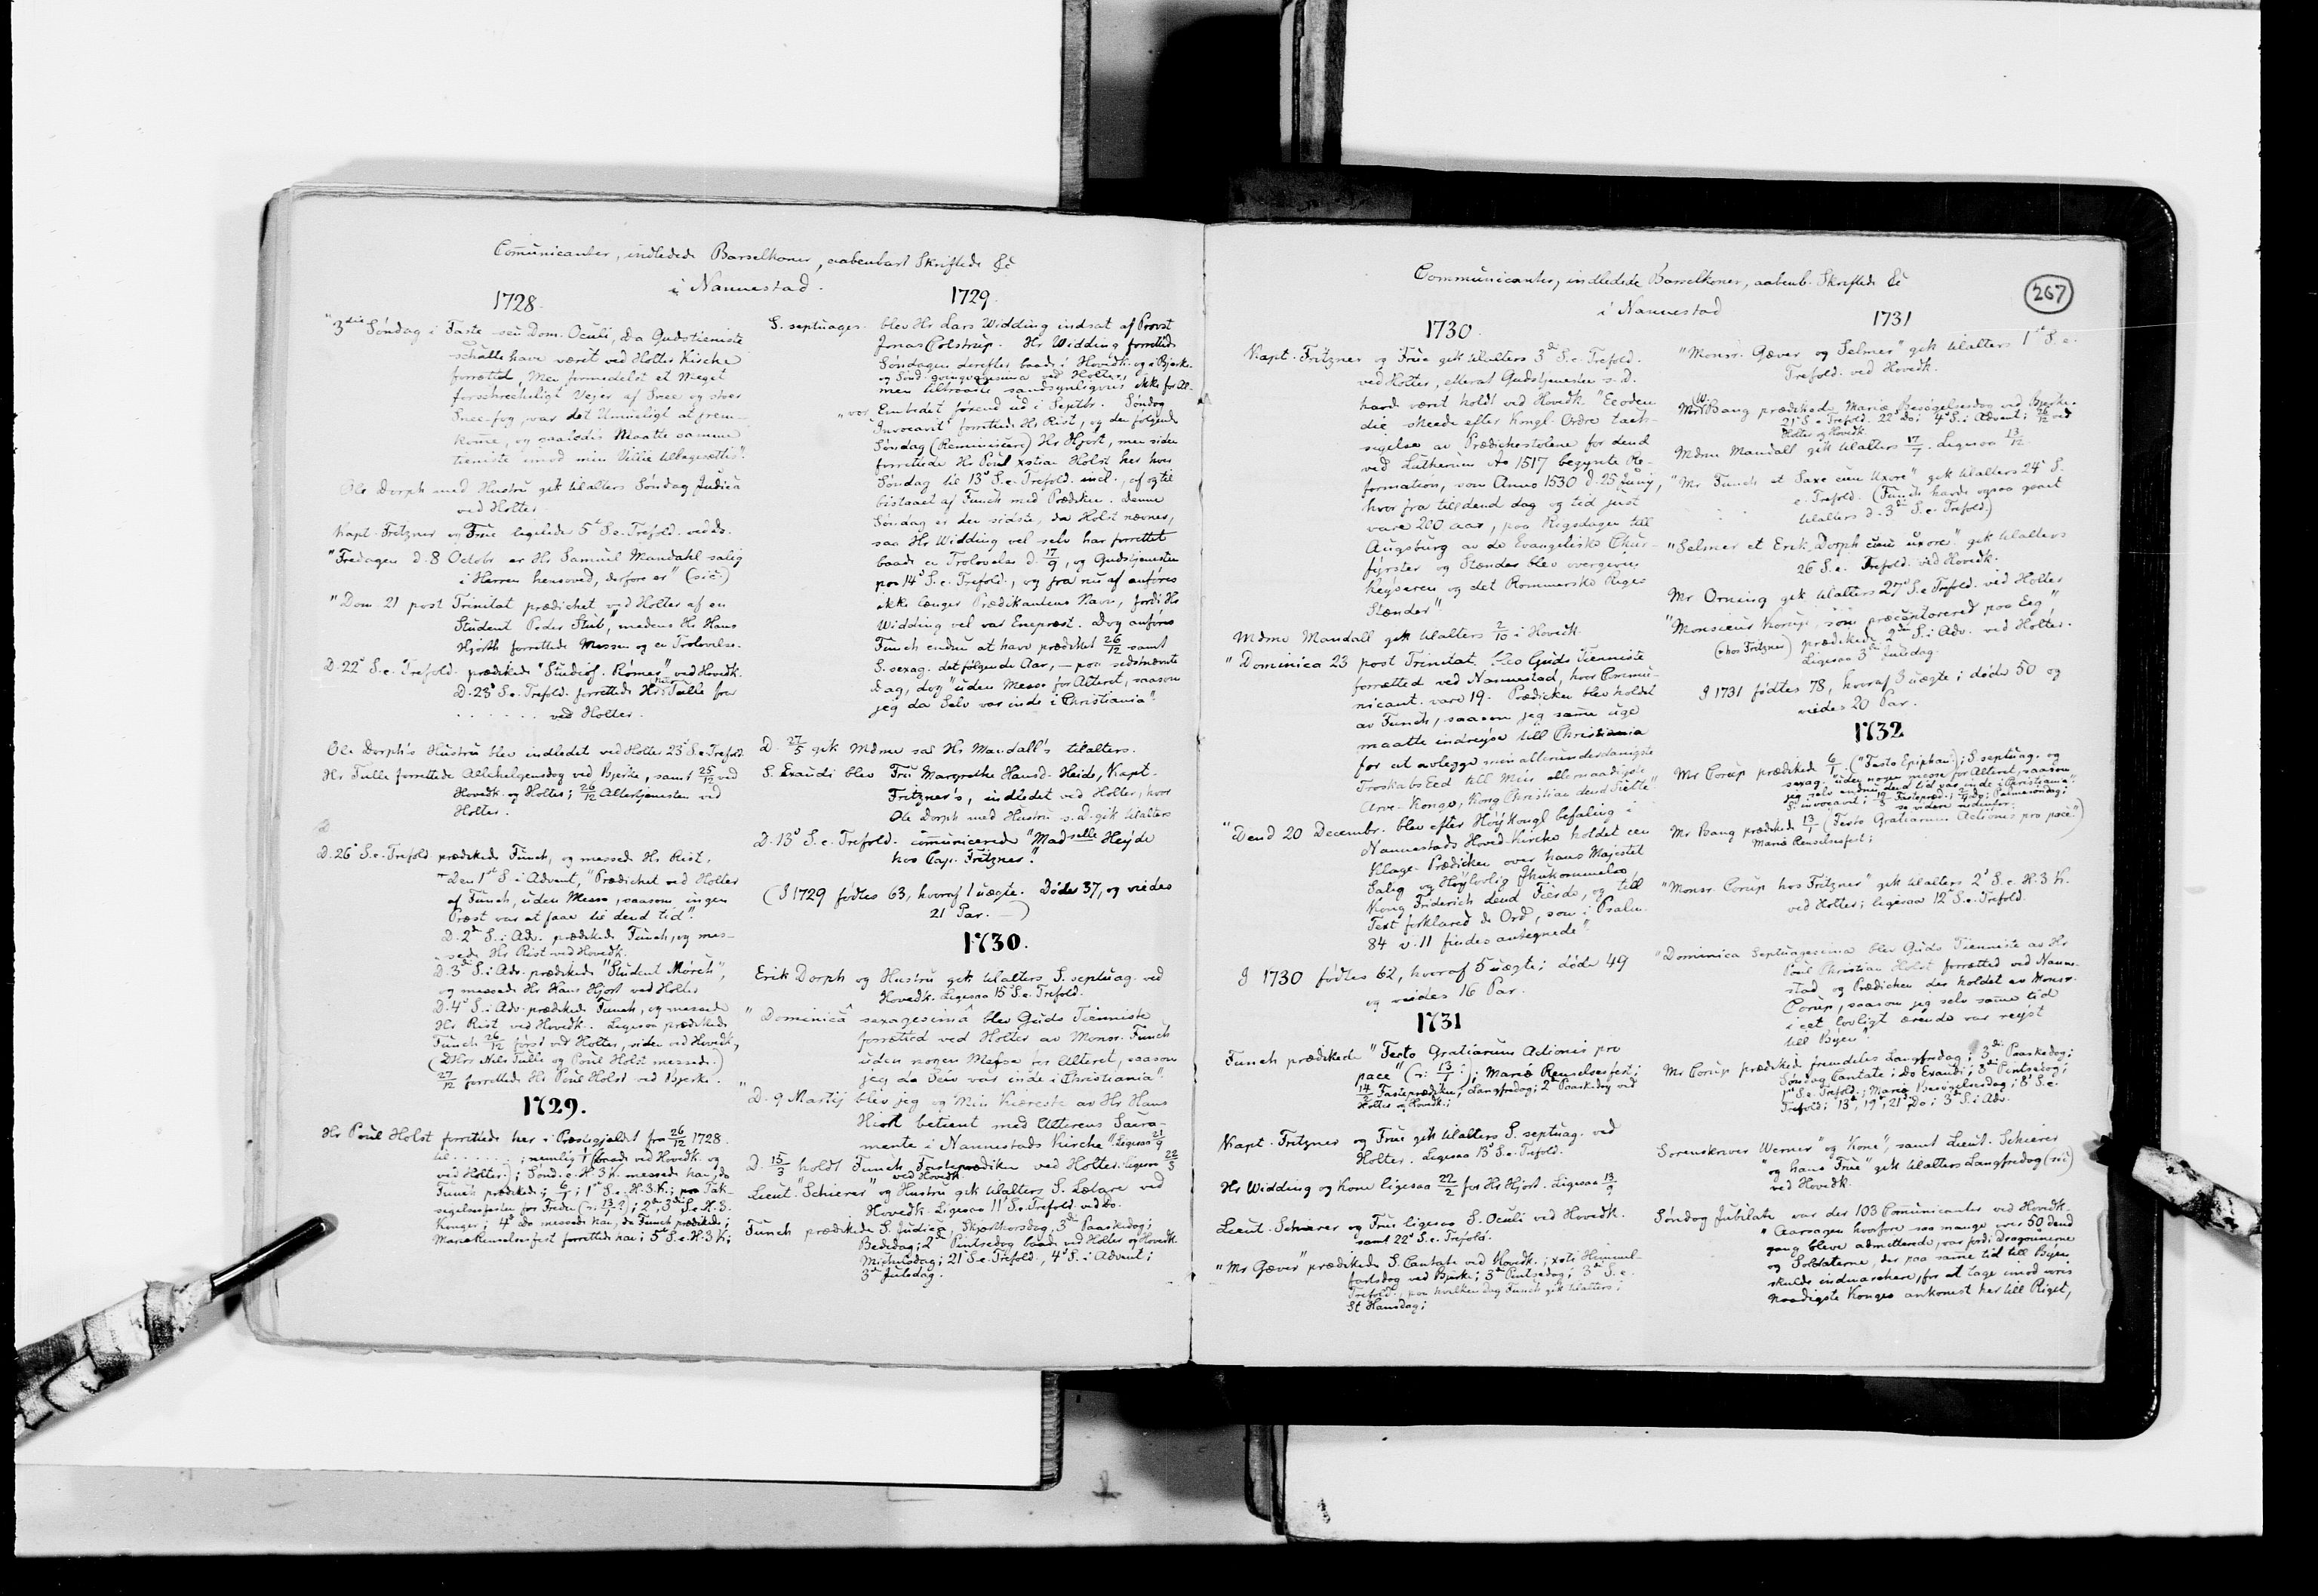 Com̄unicanter, indledede Barselkoner, aabenbart Skriftede &c
i Nannestad.
1728.
"3die Søndag i Faste seu Dom. Oculi, da Gudstieniste
schulle have værit ved Holter Kirche
forrætted, Men formedelst et Meget
forschreckeligt Vejer af Snee og stoer
Snee-fog, var det Umueligt at frem-
kom̄e, og saaledis Maatte samme
tieniste imod min Villie tilbagesættis".
Ole Dorph med Hustru gik tilalters Søndag Judica
ved Holter.
Kapt. Fritzner og Frue ligeledes 5t S. e. Trefold. ved do.
"Fredagen d. 8 Octobr er Hr Samuel Mandahl salig
i Herren hensoved, derfore er" (sic.)
"Dom 21 post Trinitat prædichet ved Holter af en
Student Peder Stub", medens Hr Hans
Hjorth forrettede Messen og en Trolovelse.
D. 22d S. e. Trefold. prædikede "Studios. Römer" ved Hovedk.
D. 23d S. e. Trefold. forrettede Hr Tulle for
. . . . . . ved Holter.
Ole Dorph's Hustru blev indledet ved Holter 23d S. e. Trefold.
Hr Tulle forrettede Allehelgensdag ved Bjerke, samt 25/12 ved
Hovedk. og Holter; 26/12 Altertjenesten ved
Holter.
D. 26d S. e. Trefold prædikede Funch, og messede Hr Rist.
Den 1st S. i Advent, "Prædichet ved Holter
af Funch, uden Messe, saasom ingen
Præst var at faae til dend tid".
D. 2den S. i Adv. prædikede Funch, og mes-
sede Hr Rist ved Hovedk.
D. 3die S. i Adv. prædikede "Student Mørch",
og messede Hr Hans Hjort ved Holter
D. 4d S. i Adv. prædikede Funch, og messede
Hr Rist ved Hovedk. Ligesaa prædikede
Funch 26/12 først ved Holter, siden ved Hovedk,
(Hr Nils Tulle og Poul Holst messede.)
27/12 forrettede Hr Poul Holst ved Bjerke.
1729.
Hr Poul Holst forrettede her i Præstegjeldet fra 26/12 1728
til . . . . . . ; nemlig 1/1 (baade ved Hovedk. og
ved Holter); Sønd. e. H. 3 K. messede han, da
Funch prædikede; 6/1; 1st S. e. H. 3 K.; paa Tak-
segelsesfesten for Freden (ɔ: 13/1 ?); 2den, 3die S. e. H. 3
Konger; 4d do messede han, da Funch prædikede;
Mariæ Renselsesfest forrettede han; 5d S. e. H. 3 K;
1729.
S. septuages. blev Hr Lars Widding indsat af Provst
Jonas Colstrup. Hr Widding forrettede
Søndagen derefter baade i Hovedk. og i Bjerke
og Sønd. qvinqvagesima ved Holter,
men tiltraadte sandsynligvis ikke for Al-
vor Embedet førend ud i Septbr. Søndag
"Invocavit" forrettede Hr Rist, og den følgende
Søndag (Reminiscere) Hr Hjort, men siden
forrettede Hr Poul Xstian Holst her hver
Søndag til 13d S. e. Trefold. incl., af og til
bistaaet af Funch med Prædiken. Denne
Søndag er den sidste, da Holst nævnes,
saa Hr Widding vel selv har forrettet
baade en Trolovelse d. 17/9, og Gudstjenesten
paa 14d S. e. Trefold., og fra nu af anføres
ikke længer Prædikantens Navn, fordi Hr
Widding vel var Enepræst. Dog anføres
Funch endnu at have prædiket 26/12 samt
S. sexag. det følgende Aar, — paa sidstnævnte
Dag, dog "uden Messe for Alteret, saasom
jeg da Selv var inde i Christiania".
D. 27/5 gik Mdme sal Hr Mandall's tilalters.
S. Exaudi blev Fru Margrethe Hansd. Heide, Kapt.
Fritzner's, indledet ved Holter, hvor
Ole Dorph med Hustru s. D. gik tilalters
D. 13d S. e. Trefold. com̄unicerede "Madselle Heyde
hos Cap. Fritzner".
(I 1729 fødtes 63, hvoraf 1 uægte. Døde 37, og viedes
21 Par. —)
1730.
Erik Dorph og Hustru gik tilalters S. septuag. ved
Hovedk. Ligesaa 15d S. e. Trefold.
"Dominicâ sexagesimâ blev Guds Tienniste
forrætted ved Holter av Monsr. Funch
uden nogen Messe for Alteret, saasom
jeg da Selv var inde i Christiania".
"D. 9 Martij blev jeg og Min Kiæreste av Hr Hans
Hiort betient med Alterens Sacra-
mente i Nannestads Kirche". Ligesaa 21/9
D. 15/3 holdt Funch Fasteprædiken ved Holter. Ligesaa 22/3
ved Hovedk.
Lieut. "Schierer" og Hustru gik tilalters S. Lætare ved
Hovedk. Ligesaa 11t S. e. Trefold. ved do.
Funch prædikede S. Judica, Skjærthorsdag, 3die Paaskedag;
Bededag; 2den Pintsedag baade ved Holter og Hovedk.
Michelsdag; 21 S. e. Trefold., 4d S. i Advent;
3die Juledag.
Communicanter, indledede Barselkoner, aabenb. Skriftede &c
i Nannestad
267
1730.
Kapt. Fritzner og Frue gik tilalters 3die S. e. Trefold.
ved Holter, efterat Gudstjenesten s. D.
havde været holdt ved Hovedk. "Ecodem
die skeede efter Kongl. Ordre tack-
sigelse av Prædichestolene for dend
ved Lutherum Ao 1517 begynte Re-
formation, som Anno 1530 d. 25 Junij,
hvor fra till dend dag og tid just
vare 200 aar, paa Rigsdagen till
Augsburg av de Evangeliske Chur-
fyrster og Stænder blev overgeven
Keyseren og det Rommerske Riges
Stænder".
Mdme Mandall gik tilalters 2/10 i Hovedk.
"Dominica 23 post Trinitat. blev Guds Tienniste
forrætted ved Nannestad, hvor Commu-
nicant. vare 19. Prædicken blev holdet
av Funch, saasom jeg sam̄e uge
maatte indreyse till Christiania
for at avlegge min allerunderdanigste
Troskabs Eed till Min allernaadigste
Arve-Konge, Kong Christian dend Siette".
"Dend 20 Decembr. blev efter Høy Kongl befaling i
Nannestads Hoved-Kirche holdet een
Klage-Prædicken over hans Majestet
Salig og Høylovlig Ihukommelse,
Kong Friderich dend Fierde, og till
Text forklared de Ord, som i Psalm.
84 v. 11 findes antegnede".
I 1730 fødtes 62, hvoraf 5 uægte; døde 49
og viedes 16 Par.
1731
Funch prædikede "Festo Gratiarum Actionis pro
pace" (ɔ: 13/1); Mariæ Renselsesfest;
14/2 Fasteprædiken; Langfredag; 2den Paaskedag ved
Holter og Hovedk.;
Kapt. Fritzner og Frue gik tilalters S. septuag. ved
Holter. Ligesaa 13d S. e. Trefold.
Hr Widding og Kone ligesaa 22/2 for Hr Hjort. Ligesaa 13/9
Lieut. Schierer og Frue ligesaa S. Oculi ved Hovedk.
samt 22d S. e. Trefold.
"Mr Gæver" prædikede S. Cantate ved Hovedk.; Xsti Himmel-
fartsdag ved Bjerke; 3die Pintsedag; 3die S. e.
Trefold., paa hvilken Dag Funch gik tilalters;
St Hansdag;
1731
"Monsr. Gæver og Selmer" gik tilalters 1st S. e.
Trefold. ved Hovedk.
Mr Bang prædikede Mariæ Besøgelsesdag ved Bjerke.
21d S. e. Trefold. 22d do; 4d S. i Advent; 26/12 ved
Holter og Hovedk.
Mdme Mandall gik tilalters 17/7. Ligesaa 13/12.
"Mr Funch et Saxe cum Uxore" gik tilalters 24d S.
e. Trefold. (Funch havde ogsaa gaaet
tilalters d. 3die S. e. Trefold.)
"Selmer et Erik Dorph cum uxore" gik tilalters
26 S. e. Trefold. ved Hovedk.
Mr Orning gik tilalters 27d S. e. Trefold. ved Holter
"Monsieur Korup, som præcentorered paa Eeg"
(ɔ: hos Fritzner) prædikede 2den S. i Adv. ved Holter.
Ligesaa 3die Juledag.
I 1731 fødtes 78, hvoraf 3 uægte; døde 50 og
viedes 20 Par.
1732
Mr Corup prædikede 6/1 ("Festo Epiphan"); S. septuag. og
sexag. "uden nogen messe for Alteret, saasom
jeg selv endnu dend tid var inde i Christiania".
S. invocavit; 19/3 Fastepræd.; 4/4 do; Palmesøndag;
se videre nedenfor.
Mr Bang prædikede 13/1 (Festo Gratiarum Actionis pro pace")
Mariæ Renselsesfest;
"Monsr. Corup hos Fritzner" gik tilalters 2d S. e. H. 3 K.
ved Holter; ligesaa 12d S. e. Trefold.
"Dominica Septuagesima blev Guds Tienniste av Hr
Poul Christian Holst forrætted ved Nanne-
stad og Prædicken der holdet av Monsr.
Corup, saasom jeg selv sam̄e tid
i eet lovligt ærende var reyst
till Byen".
Mr Corup prædikede fremdeles Langfredag; 3die Paaskedag;
Søndag Cantate; do Exaudi; 3die Pintsedag;
1st S. e. Trefold.; Mariæ Besøgelsesdag; 8d S. e.
Trefold; 13d, 19d, 21d do; 3die S. i Adv.
Sorenskriver Werner "og Kone", samt Lieut. Schierer
"og hans Frue" gik tilalters Langfredag (sic)
ved Hovedk.
Søndag Jubilate var der 103 Com̄unicanter ved Hovedk.
"Aarsagen hvorfore saa mange over 50 dend
gang bleve admitterede, var fordi Dragounerne
og Soldaterne, der paa sam̄e tid till Byen
skulde indmarchere, for at tage imod voris
Naadigste Konges ankomst her till Riget,